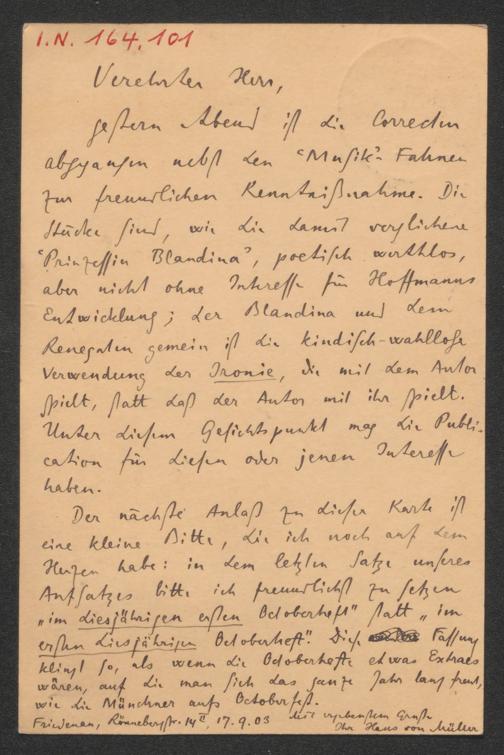 I.N. 164.101
Verehrter Herr,
gestern Abend ist die Correctur
abgegangen nebst den "Musik"-Fahnen
zur freundlichen Kenntnißnahme. Die
Stücke sind, wie die damit verglichene
"Prinzessin Blandina", poetisch werthlos,
aber nicht ohne Interesse für Hoffmanns
Entwicklung; der Blandina und dem
Renegaten gemein ist die kindisch-wahllose
Verwendung der Ironie, die mit dem Autor
spielt, statt daß der Autor mit ihr spielt.
Unter diesem Gesichtspunkt mag die Publi-
cation für diesen oder jenen Interesse
haben.
Der nächste Anlaß zu dieser Karte ist
eine kleine Bitte, die ich noch auf dem
Herzen habe: in dem letzten Satze unseres
Aufsatzes bitte ich freundlichst zu setzen
„im diesjährigen ersten Octoberheft" statt „im
ersten diesjährigen Octoberheft". Diese Fassung
klingt so, als wenn die Octoberhefte etwas Extraes
wären, auf die man sich das ganze Jahr lang freut,
wie die Münchner aufs Octoberfest.
Friedenau, Rönnebergstr. 14 II, 17.9.03 Mit ergebenstem Gruße
Ihr Hans von Müller